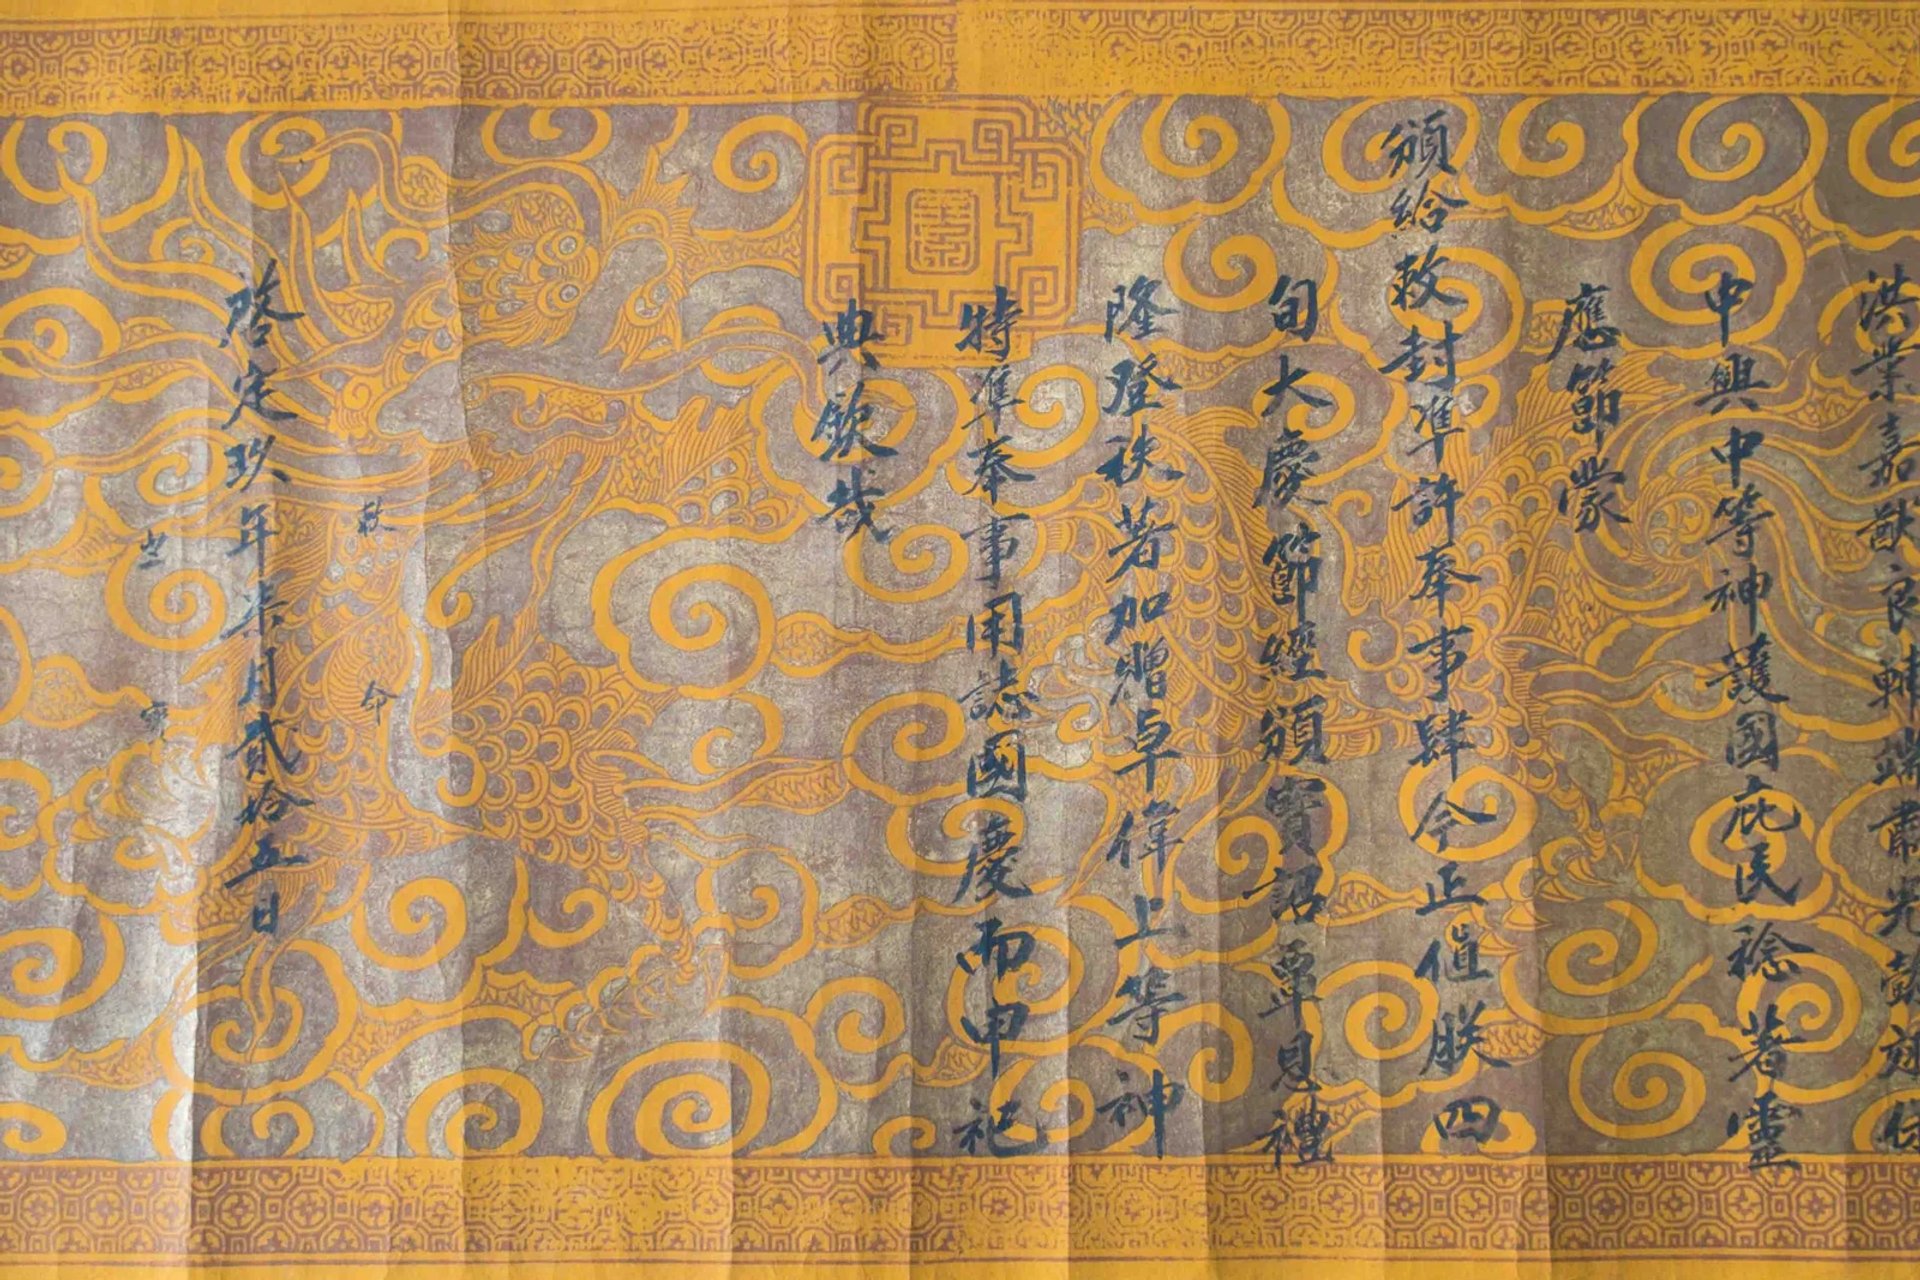 洪業嘉猷良端肅光懿翊保
中興中等神護國庇民稔著靈
應節蒙
頒給敕封准許奉事肆今正值朕四
旬大慶節經頒寶詔覃恩禮
隆登秩著加贈卓偉上等神
特準奉事用誌國慶而申祀
典欽哉
敕命
啓定玖年柒月貳拾五日
之寶